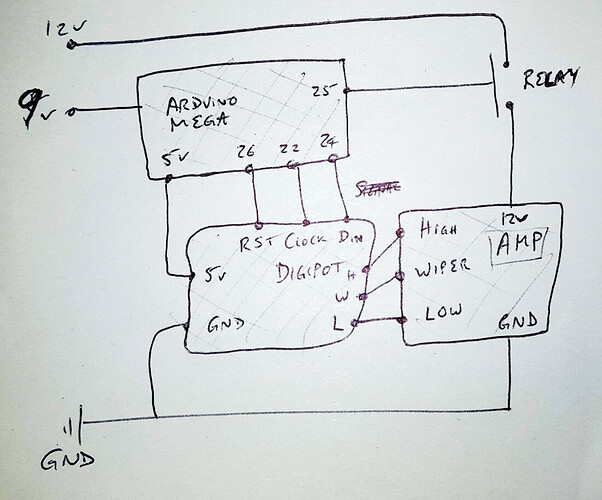 12V
9V
ARDUINO
MEGA
25
RELAY
5V
26
22
24
RST CLOCK DIN
DIGIPOT
H
W
L
5V
GND
12V
AMP
HIGH
WIPER
LOW
GND
GND